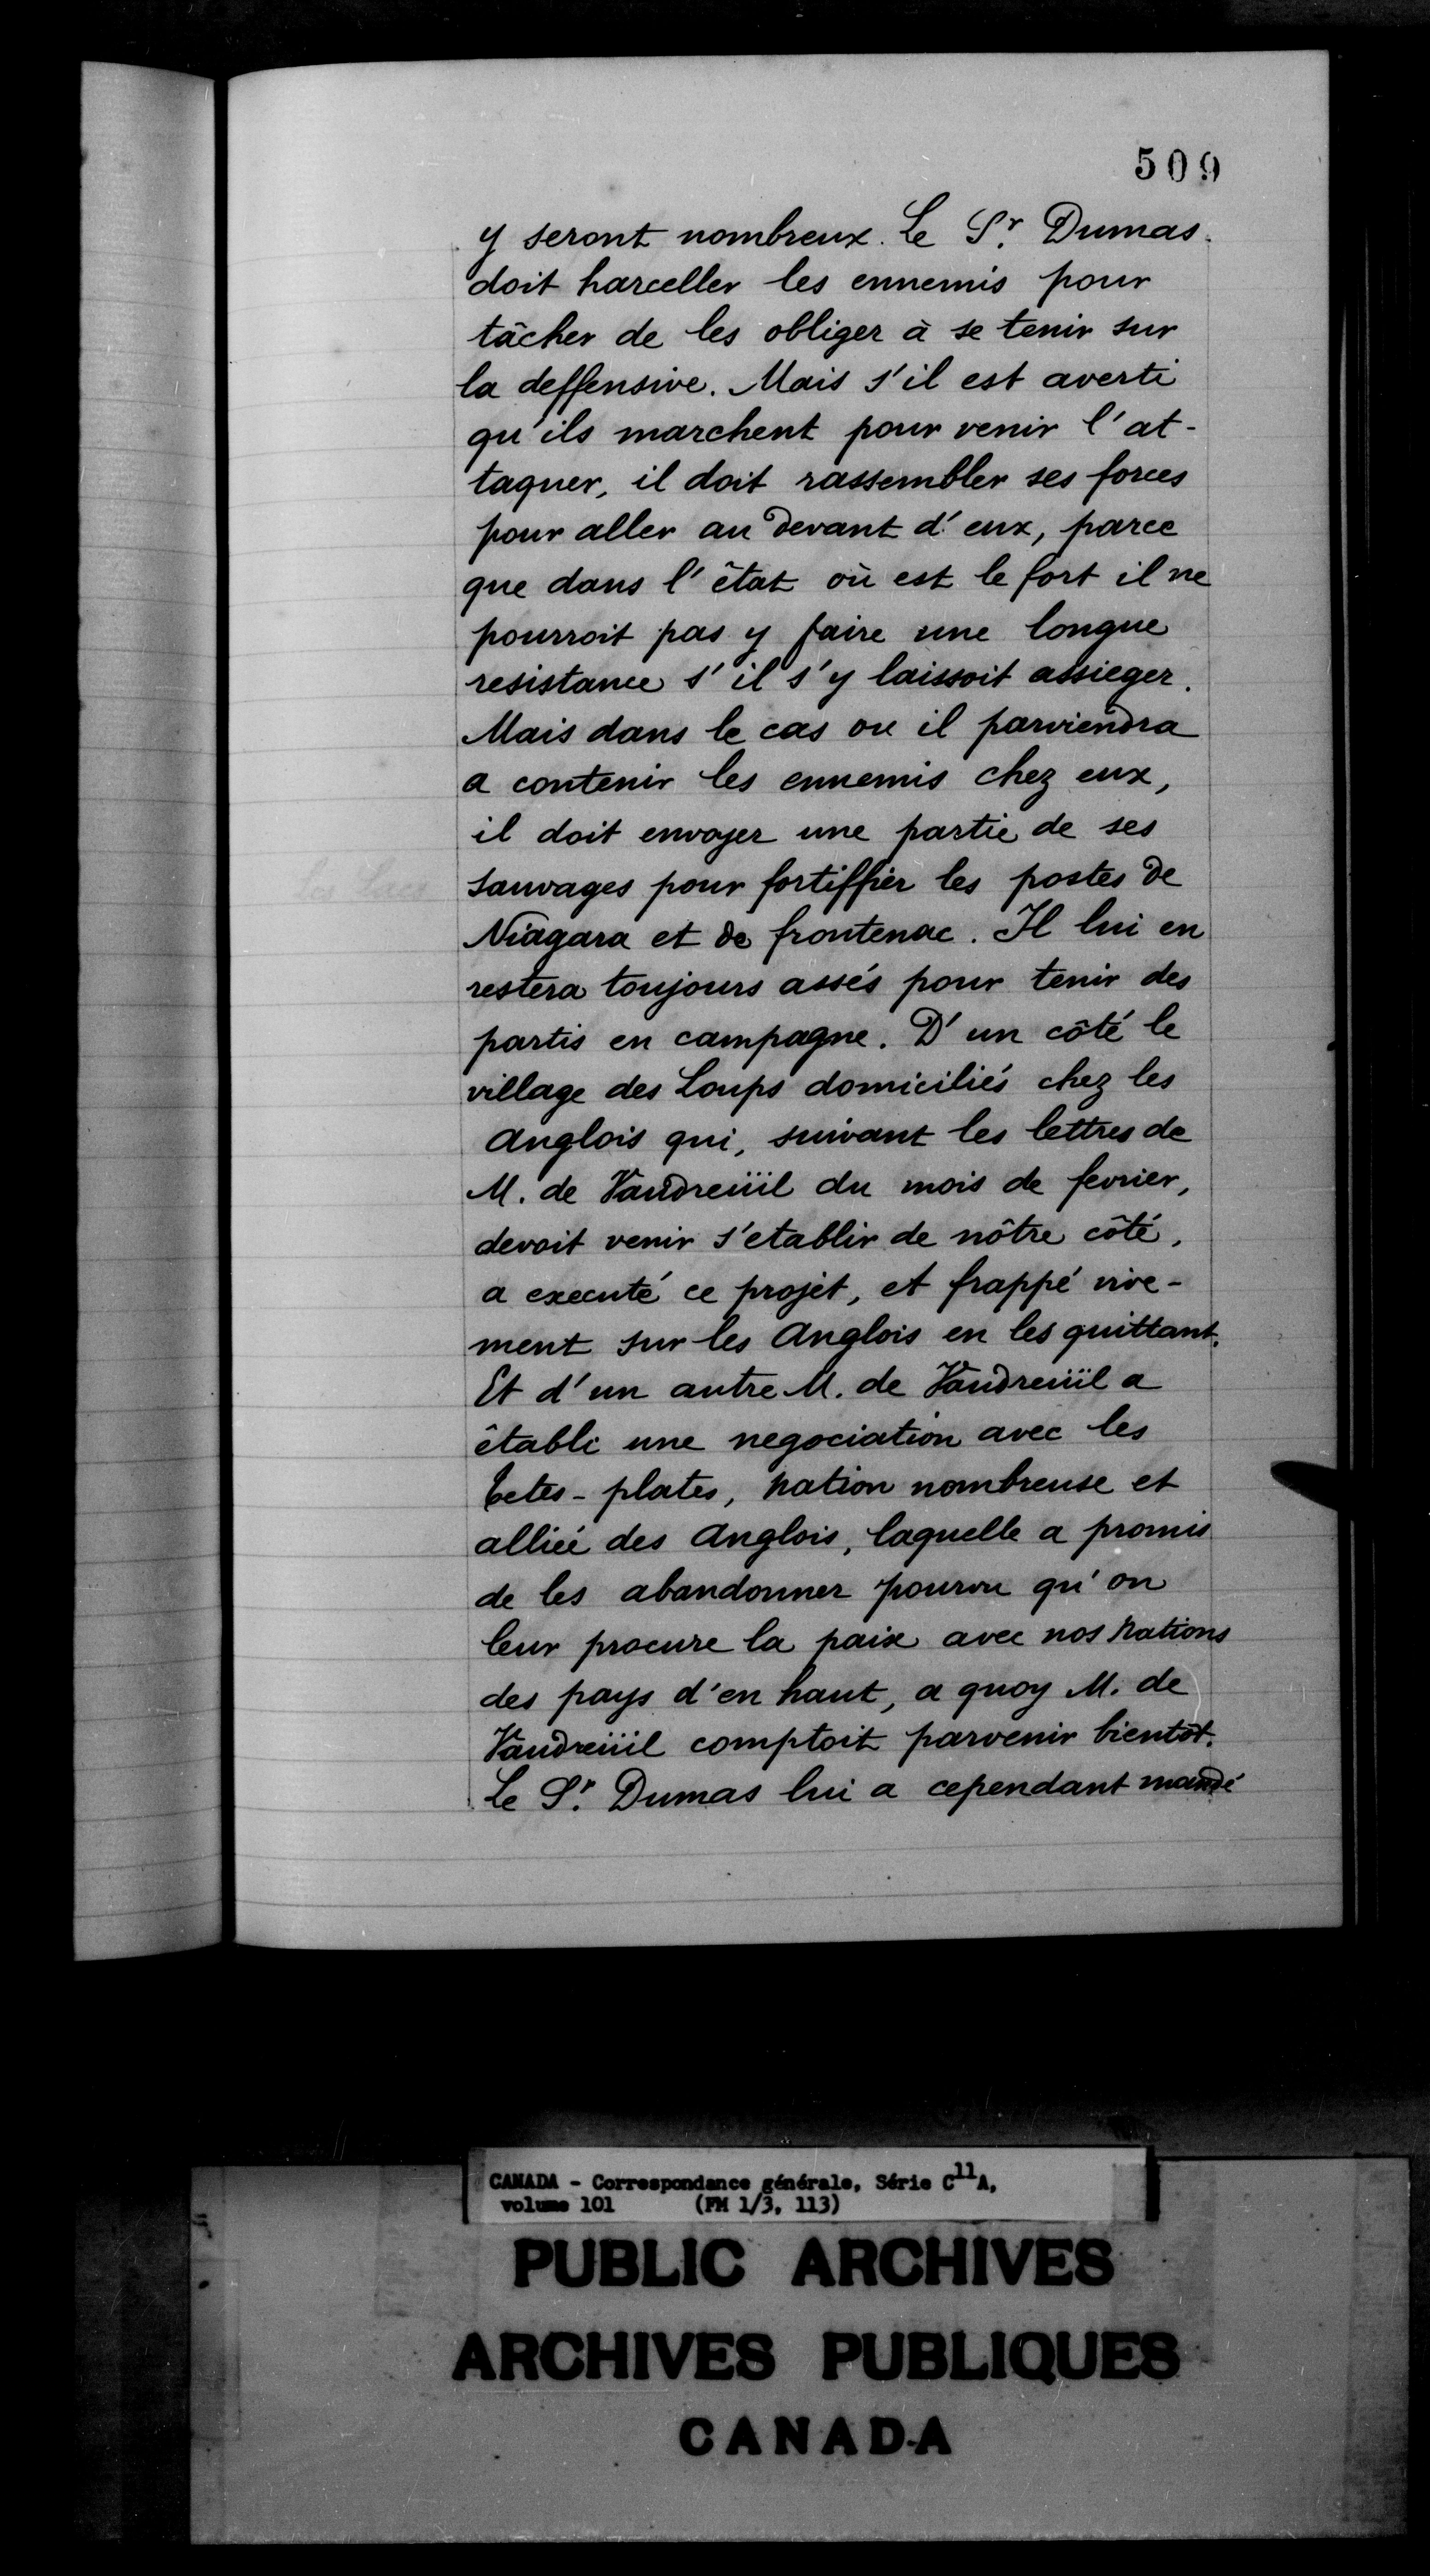 509
y seront nombreux. Le Sr. Dumas
doit harceller les ennemis pour
tâcher de les obliger à se tenir sur
la deffensive. Mais s'il est averti
qu'ils marchent pour venir l'at-
taquer, il doit rassembler ses forces
pour aller au devant d'eux, parce
que dans l'êtat où est le fort il ne
pourroit pas y faire une longue
resistance s'il s'y laissoit assieger.
Mais dans le cas ou il parviendra
a contenir les ennemis chez eux,
il doit envoyer une partie de ses
sauvages pour fortiffier les postes de
Niagara et de frontenac. Il lui en
restera toujours assés pour tenir des
partis en campagne. D'un côté le
village des Loups domiciliés chez les
Anglois qui, suivant les lettres de
M. de Vaudreüil du mois de fevrier,
devoit venir s'etablir de nôtre côté,
a executé ce projet, et frappé vive-
ment sur les Anglois en les quittant.
Et d'un autre M. de Vaudreüil a
êtabli une negociation avec les
Tetes-plates, nation nombreuse et
alliée des Anglois, laquelle a promis
de les abandonner pourvu qu'on
leur procure la paix avec nos nations
des pays d'en haut, a quoy M. de
Vaudreüil comptoit parvenir bientôt.
Le Sr. Dumas lui a cependant mandé
CANADA - Correspondance générale, Série C11A,
volume 101 (FM 1/3, 113)
PUBLIC ARCHIVES
ARCHIVES PUBLIQUES
CANADA